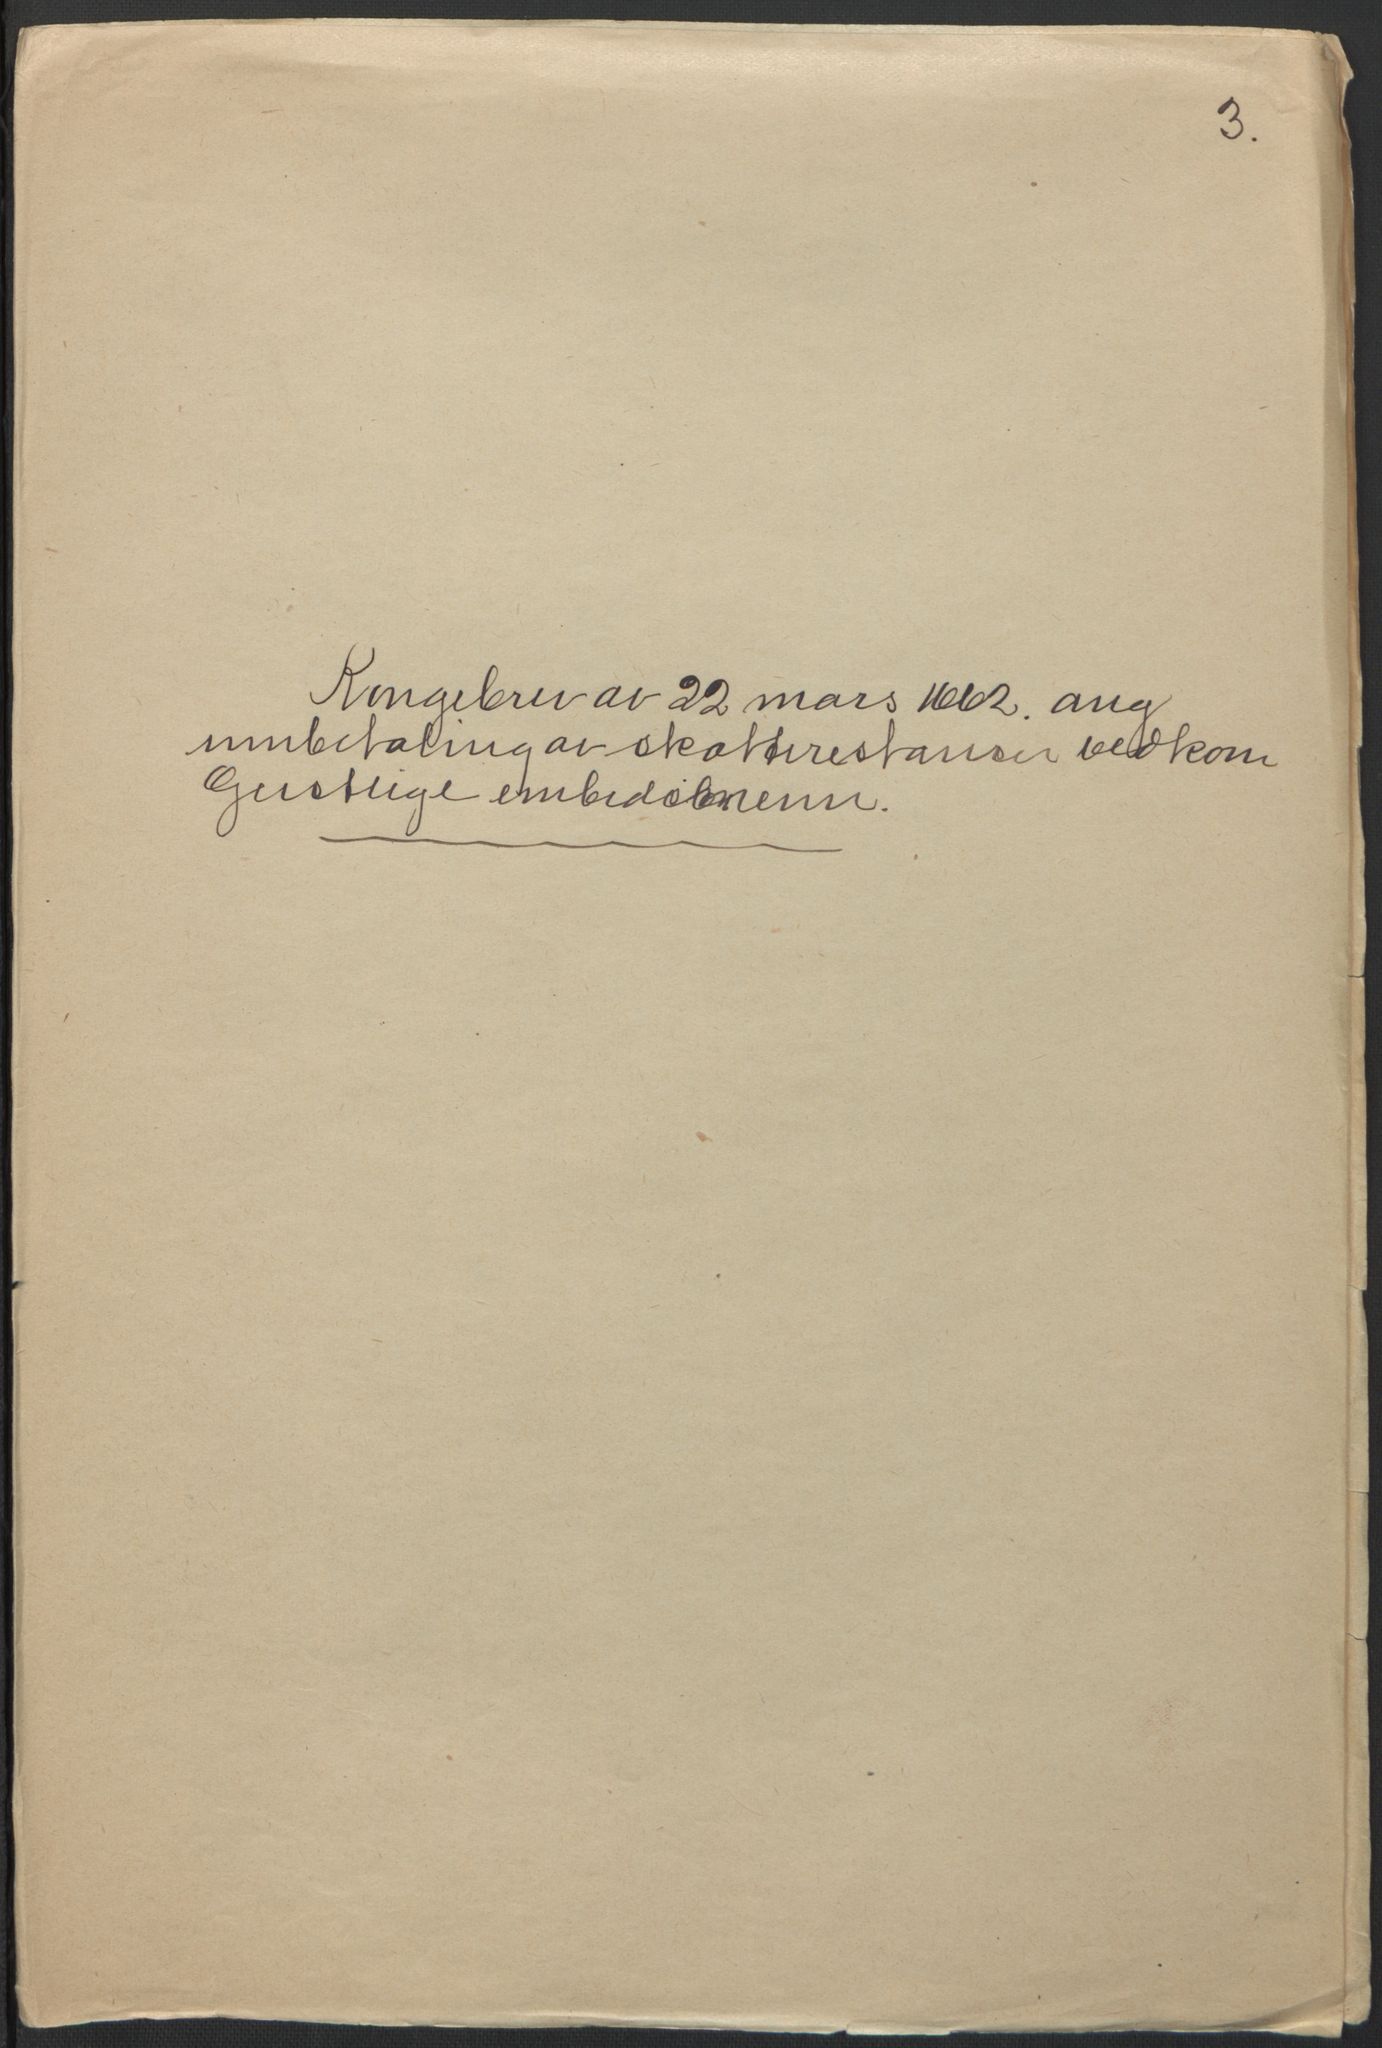 3.
Kongebrev av 22 mars 1662. ang
innbetaling av skatterestanser vedkom
Geistlige embedsmenn.